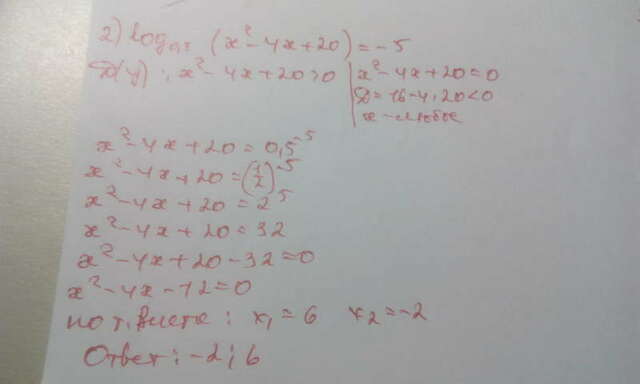 2) log₀,₅ (x² - 4x + 20) = -5
D(y): x² - 4x + 20 > 0 | x² - 4x + 20 = 0
D = 16 - 4·20 < 0
x - любое
x² - 4x + 20 = 0,5⁻⁵
x² - 4x + 20 = (1/2)⁻⁵
x² - 4x + 20 = 2⁵
x² - 4x + 20 = 32
x² - 4x + 20 - 32 = 0
x² - 4x - 12 = 0
по т. Виета: x₁ = 6 x₂ = -2
Ответ: -2; 6